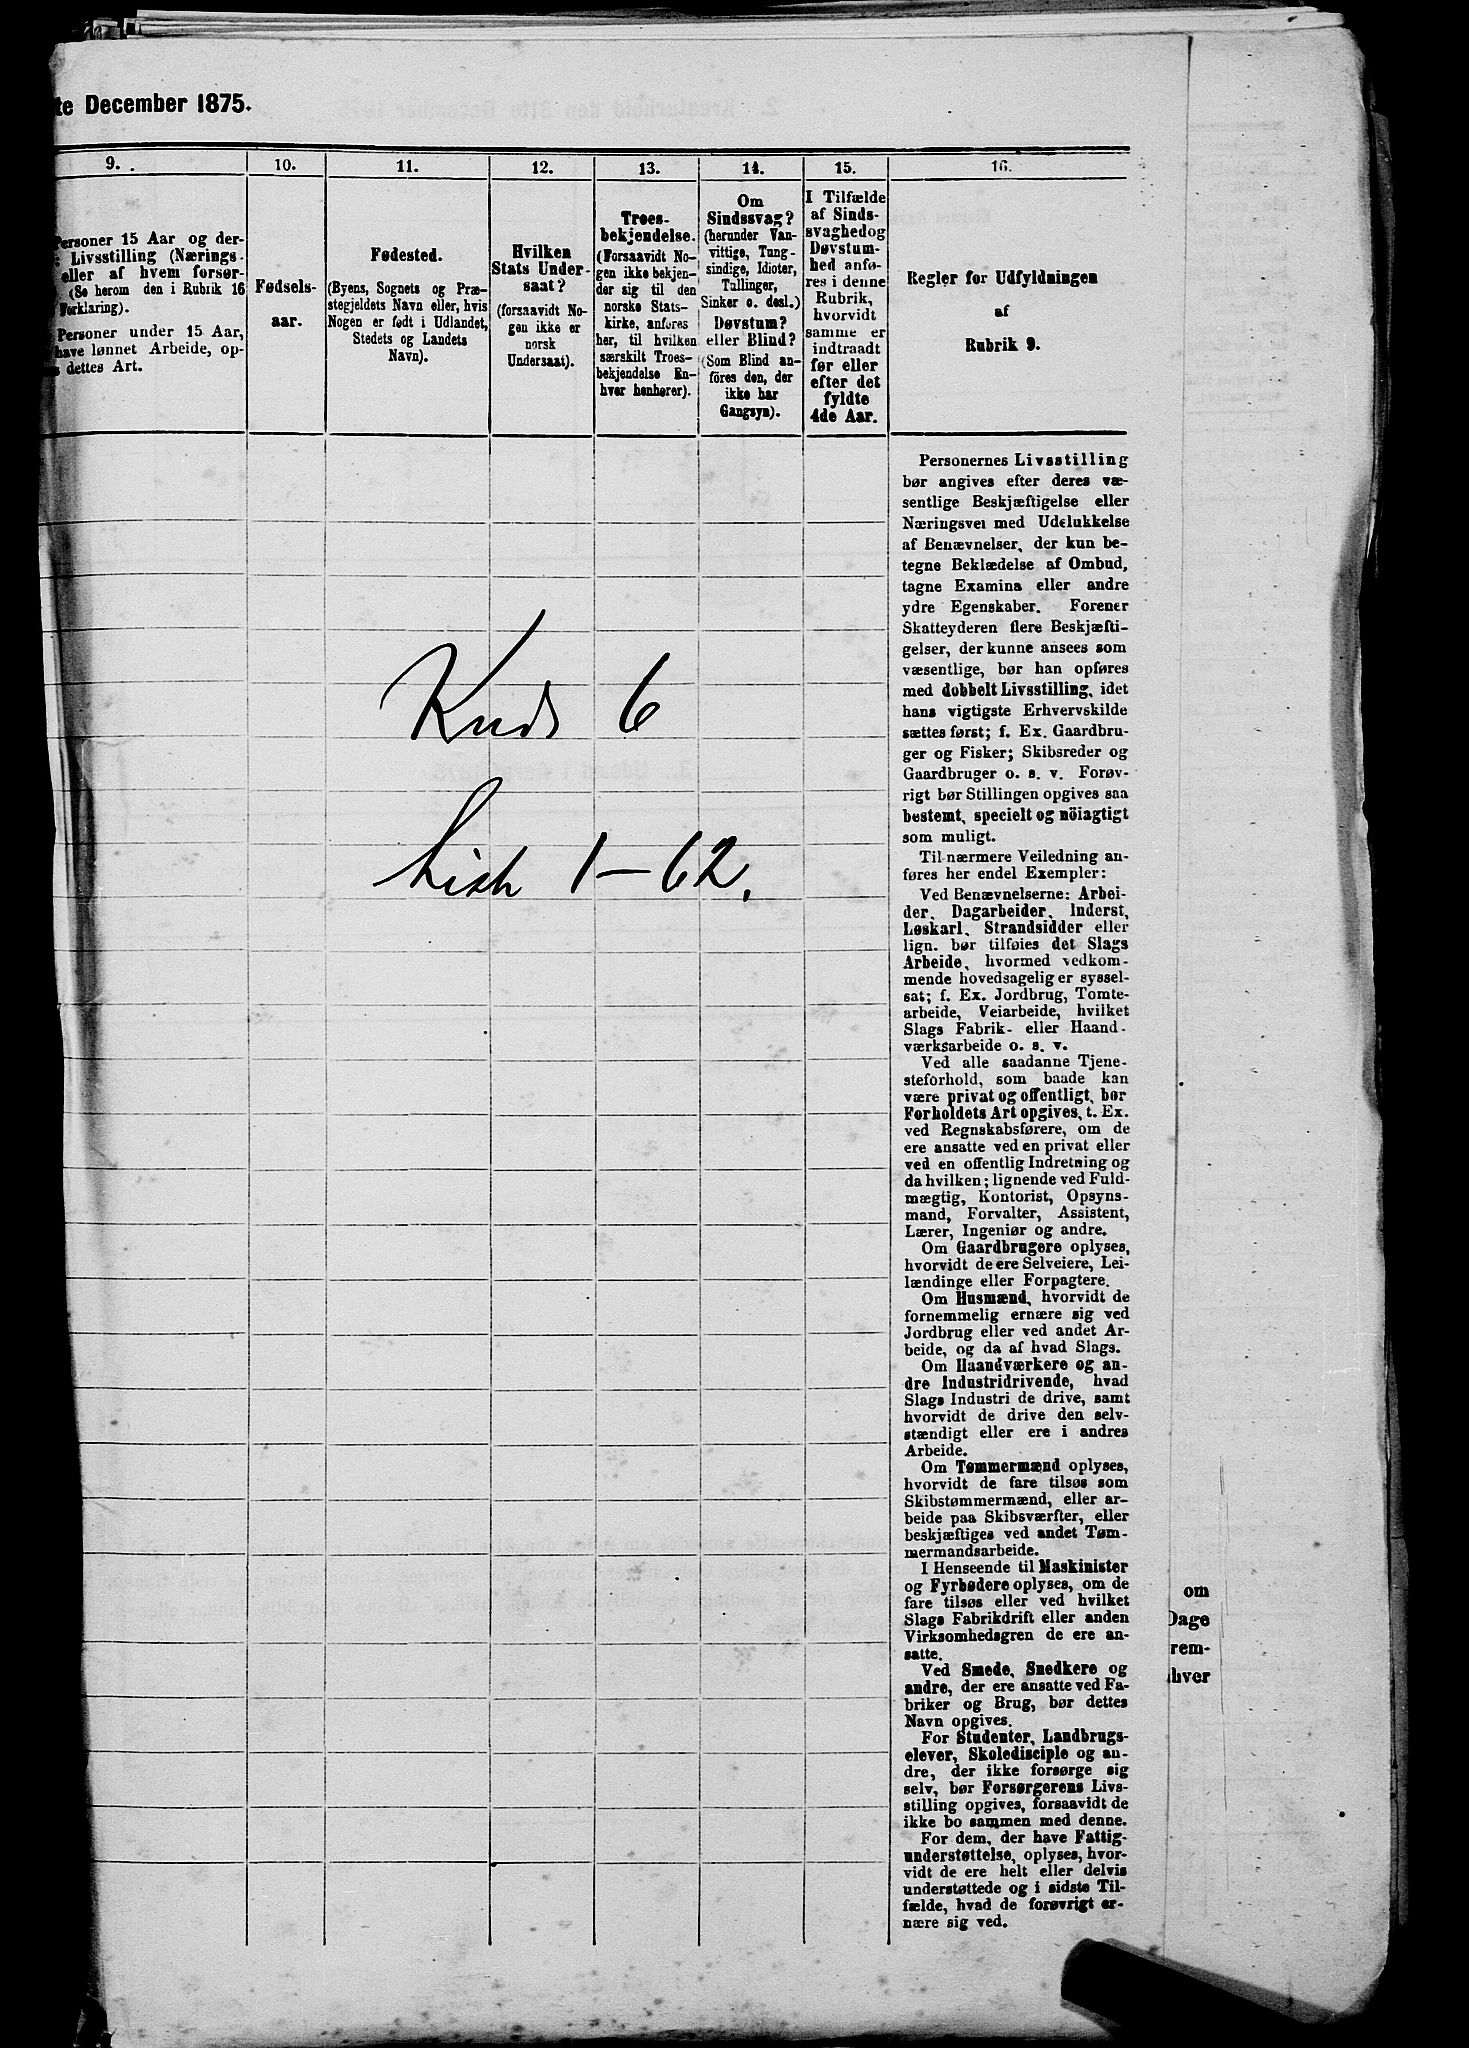 te December 1875.
9.
10.
11.
12.
13.
14.
15.
16.
Personer 15 Aar og der-
Livsstilling (Nærings-
eller af hvem forsør-
(Se herom den i Rubrik 16
Forklaring).
Personer under 15 Aar,
have lønnet Arbeide, op-
dettes Art.
Fødsels-
aar.
Fødested.
(Byens, Sognets og Præ-
stegjeldets Navn eller, hvis
Nogen er født i Udlandet,
Stedets og Landets
Navn).
Hvilken
Stats Under-
saat?
(forsaavidt No-
gen ikke er
norsk
Undersaat).
Troes-
bekjendelse.
(Forsaavidt No-
gen ikke bekjen-
der sig til den
norske Stats-
kirke, anføres
her, til hvilken
særskilt Troes-
bekjendelse En-
hver henhører).
Om
Sindssvag?
(herunder Van-
vittige, Tung-
sindige, Idioter,
Tullinger,
Sinker o. desl.)
Døvstum?
eller Blind?
(Som Blind an-
föres den, der
ikke har
Gangsyn).
I Tilfælde
af Sinds-
svaghed og
Døvstum-
hed anfø-
res i denne
Rubrik,
hvorvidt
samme er
indtraadt
før eller
efter det
fyldte
4de Aar.
Regler for Udfyldningen
af
Rubrik 9.
Personernes Livsstilling
bør angives efter deres væ-
sentlige Beskjæftigelse eller
Næringsvei med Udelukkelse
af Benævnelser, der kun be-
tegne Beklædelse af Ombud,
tagne Examina eller andre
ydre Egenskaber. Forener
Skatteyderen flere Beskjæfti-
gelser, der kunne ansees som
væsentlige, bør han opføres
med dobbelt Livsstilling, idet
hans vigtigste Erhvervskilde
sættes først; f. Ex. Gaardbru-
ger og Fisker; Skibsreder og
Gaardbruger o. s. v. Forøv-
rigt bør Stillingen opgives saa
bestemt, specielt og nöiagtigt
som muligt.
Til nærmere Veiledning an-
føres her endel Exempler:
Ved Benævnelserne: Arbei-
der, Dagarbeider, Inderst,
Løskarl, Strandsidder eller
lign. bør tilføies det Slags
Arbeide, hvormed vedkom-
mende hovedsagelig er syssel-
sat; f. Ex. Jordbrug, Tomte-
arbeide, Veiarbeide, hvilket
Slags Fabrik- eller Haand-
værksarbeide o. s. v.
Ved alle saadanne Tjene-
steforhold, som baade kan
være privat og offentligt, bør
Forholdets Art opgives, t. Ex.
ved Regnskabsførere, om de
ere ansatte ved en privat eller
ved en offentlig Indretning og
da hvilken; lignende ved Fuld-
mægtig, Kontorist, Opsyns-
mand, Forvalter, Assistent,
Lærer, Ingeniør og andre.
Om Gaardbrugere oplyses,
hvorvidt de ere Selveiere, Lei-
lændinge eller Forpagtere.
Om Husmænd, hvorvidt de
fornemmelig ernære sig ved
Jordbrug eller ved andet Ar-
beide, og da af hvad Slags.
Om Haandværkere og an-
dre Industridrivende, hvad
Slags Industri de drive, samt
hvorvidt de drive den selv-
stændigt eller ere i andres
Arbeide.
Om Tømmermænd oplyses,
hvorvidt de fare tilsøs som
Skibstømmermænd, eller ar-
beide paa Skibsværfter, eller
beskjæftiges ved andet Tøm-
mermandsarbeide.
I Henseende til Maskinister
og Fyrbødere oplyses, om de
fare tilsøs eller ved hvilket
Slags Fabrikdrift eller anden
Virksomhedsgren de ere an-
satte.
Ved Smede, Snedkere og
andre, der ere ansatte ved Fa-
briker og Brug, bør dettes
Navn opgives.
For Studenter, Landbrugs-
elever, Skoledisciple og an-
dre, der ikke forsørge sig
selv, bør Forsørgerens Livs-
stilling opgives, forsaavidt de
ikke bo sammen med denne.
For dem, der have Fattig-
understøttelse, oplyses, hvor-
vidt de ere helt eller delvis
understøttede og i sidste Til-
fælde, hvad de forøvrigt er-
nære sig ved.
Kreds 6
Liste 1-62.
om
Dage
rem-
hver